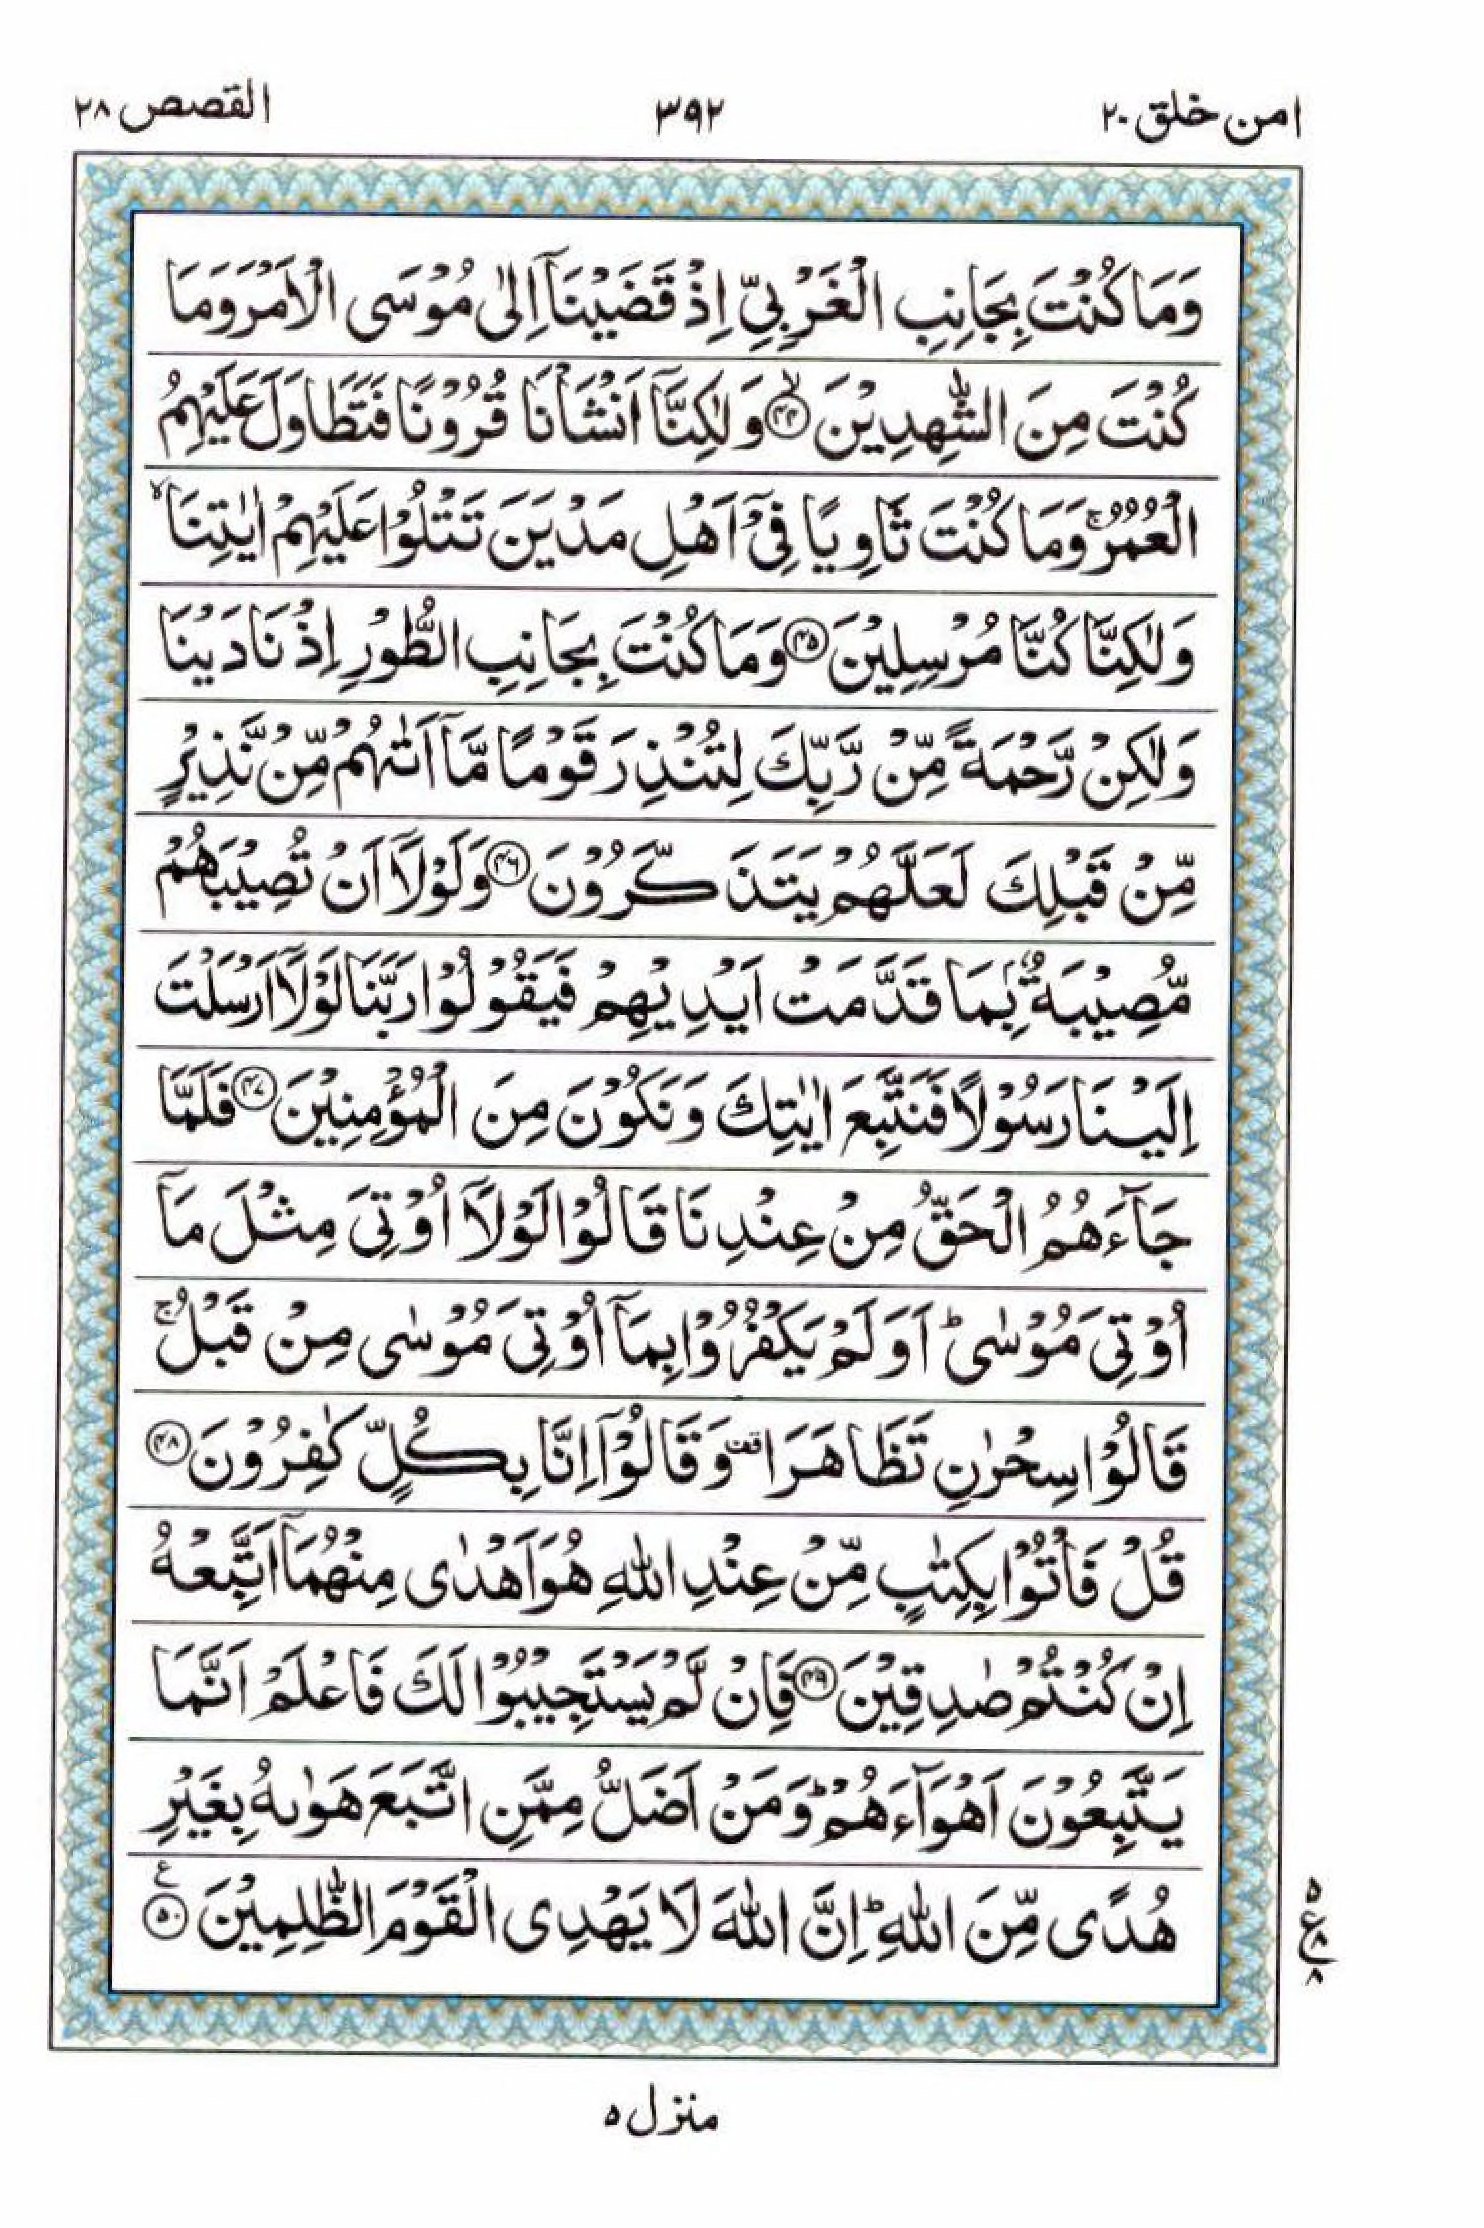 امن خلق ۲۰
۳۹۲
القصص ۲۸
وَمَا كُنْتَ بِجَانِبِ الْغَرْبِيِّ اِذْ قَضَيْنَاۤ اِلٰى مُوْسَى الْاَمْرَ وَمَا
كُنْتَ مِنَ الشّٰهِدِيْنَ ۙ﴿۴۴﴾ وَلٰكِنَّاۤ اَنْشَاْنَا قُرُوْنًا فَتَطَاوَلَ عَلَيْهِمُ
الْعُمُرُ ۚ وَمَا كُنْتَ ثَاوِيًا فِيْۤ اَهْلِ مَدْيَنَ تَتْلُوْا عَلَيْهِمْ اٰيٰتِنَا ۙ
وَلٰكِنَّا كُنَّا مُرْسِلِيْنَ ﴿۴۵﴾ وَمَا كُنْتَ بِجَانِبِ الطُّوْرِ اِذْ نَادَيْنَا
وَلٰكِنْ رَّحْمَةً مِّنْ رَّبِّكَ لِتُنْذِرَ قَوْمًا مَّاۤ اَتٰىهُمْ مِّنْ نَّذِيْرٍ
مِّنْ قَبْلِكَ لَعَلَّهُمْ يَتَذَكَّرُوْنَ ﴿۴۶﴾ وَلَوْلَاۤ اَنْ تُصِيْبَهُمْ
مُّصِيْبَةٌۢ بِمَا قَدَّمَتْ اَيْدِيْهِمْ فَيَقُوْلُوْا رَبَّنَا لَوْلَاۤ اَرْسَلْتَ
اِلَيْنَا رَسُوْلًا فَنَتَّبِعَ اٰيٰتِكَ وَنَكُوْنَ مِنَ الْمُؤْمِنِيْنَ ﴿۴۷﴾ فَلَمَّا
جَآءَهُمُ الْحَقُّ مِنْ عِنْدِنَا قَالُوْا لَوْلَاۤ اُوْتِيَ مِثْلَ مَاۤ
اُوْتِيَ مُوْسٰى ؕ اَوَلَمْ يَكْفُرُوْا بِمَاۤ اُوْتِيَ مُوْسٰى مِنْ قَبْلُ ۚ
قَالُوْا سِحْرٰنِ تَظَاهَرَا ۥقف وَقَالُوْۤا اِنَّا بِكُلٍّ كٰفِرُوْنَ ﴿۴۸﴾
قُلْ فَاْتُوْا بِكِتٰبٍ مِّنْ عِنْدِ اللّٰهِ هُوَ اَهْدٰى مِنْهُمَاۤ اَتَّبِعْهُ
اِنْ كُنْتُمْ صٰدِقِيْنَ ﴿۴۹﴾ فَاِنْ لَّمْ يَسْتَجِيْبُوْا لَكَ فَاعْلَمْ اَنَّمَا
يَتَّبِعُوْنَ اَهْوَآءَهُمْ ؕ وَمَنْ اَضَلُّ مِمَّنِ اتَّبَعَ هَوٰىهُ بِغَيْرِ
هُدًى مِّنَ اللّٰهِ ؕ اِنَّ اللّٰهَ لَا يَهْدِى الْقَوْمَ الظّٰلِمِيْنَ ﴿۵۰﴾ ع
۵
ع ۸
۸
منزل ۵